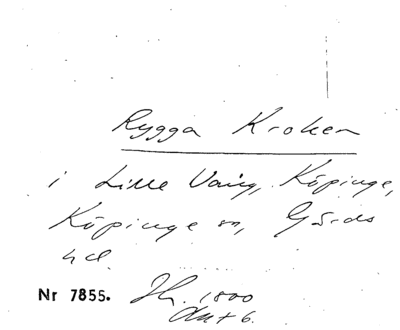 Rygga Kroken
i Lille Vång, Köpinge,
Köpinge sn, Gärds
hd
Nr 7855. 1800